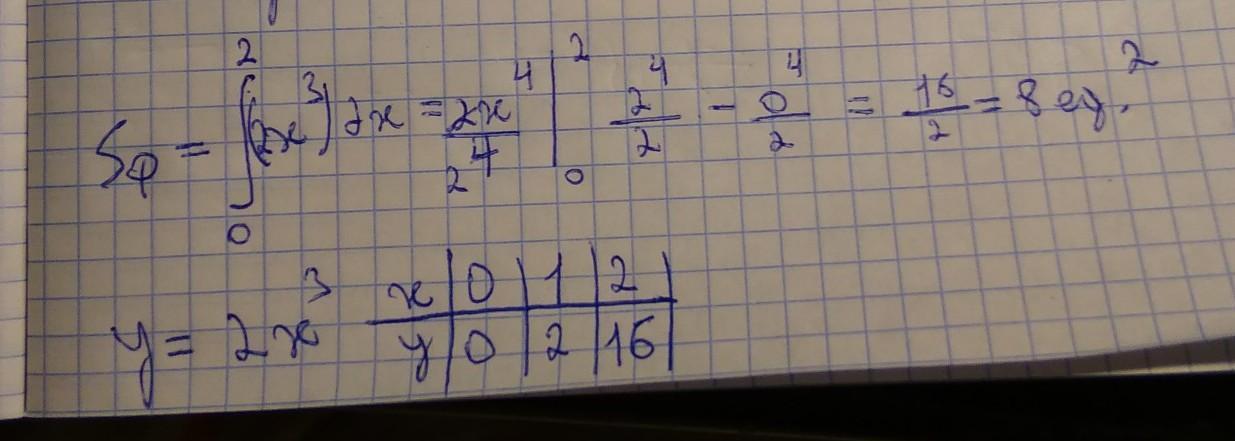 Sф = ∫₀² (2x³) dx = 2x⁴/2 4 |₀² 2⁴/2 - 0⁴/2 = 16/2 = 8 eg.²
y = 2x³ x | 0 | 1 | 2 |
y | 0 | 2 | 16 |